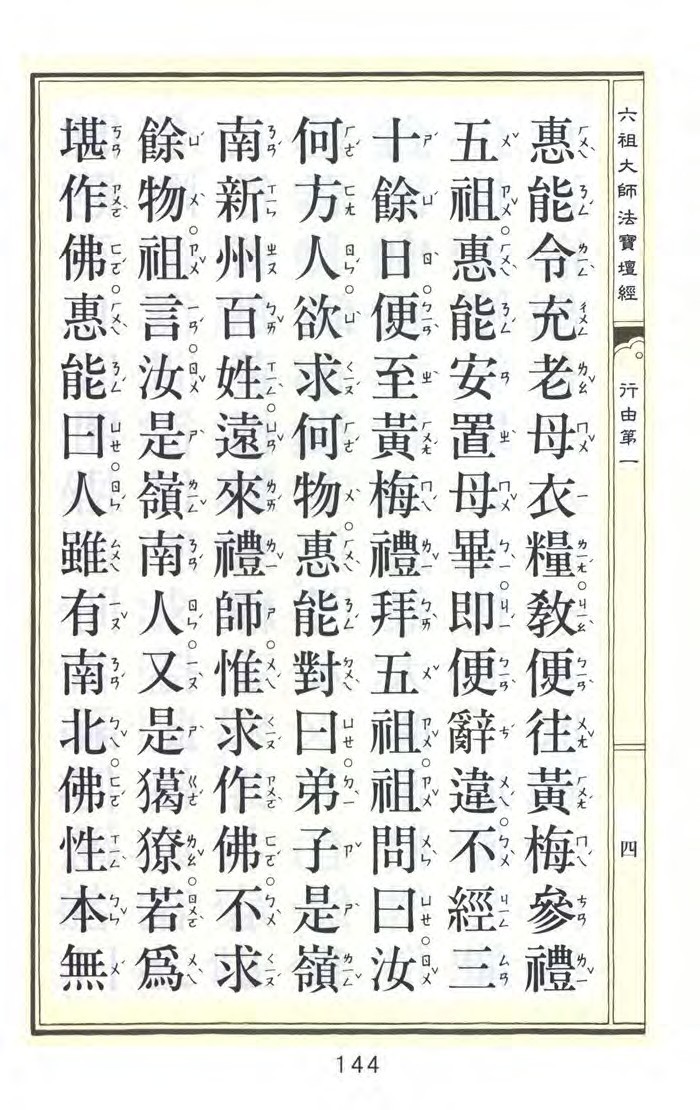 六祖大師法寶壇經 行由第一 四
惠能令充老母衣糧。教便往黃梅參禮
五祖。惠能安置母畢。即便辭違。不經三
十餘日。便至黃梅。禮拜五祖。祖問曰。汝
何方人。欲求何物。惠能對曰。弟子是嶺
南新州百姓。遠來禮師。惟求作佛。不求
餘物。祖言。汝是嶺南人。又是獦獠。若為
堪作佛。惠能曰。人雖有南北。佛性本無
144